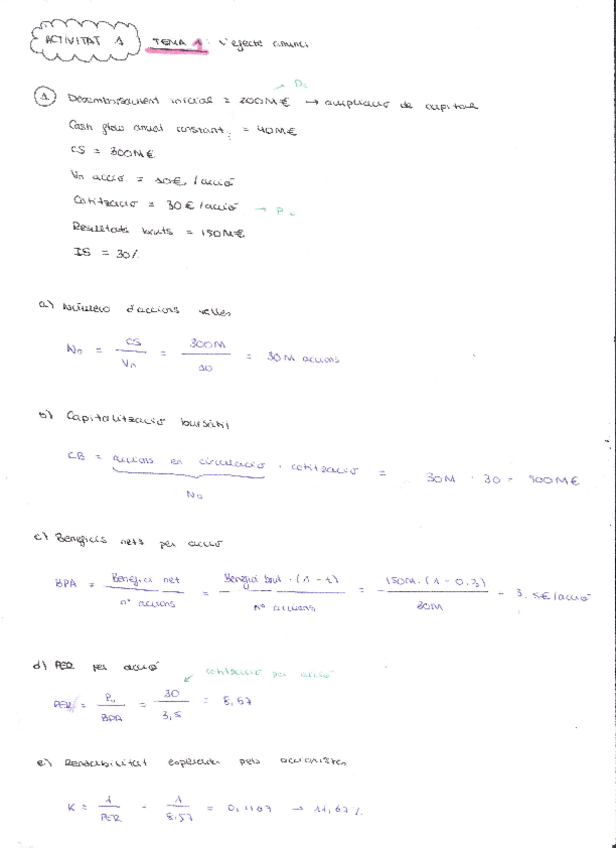 ACTIVITAT 1 TEMA 1: L'efecte anunci
→ D₀
1 Desemborsament inicial = 200M€ → ampliació de capital
Cash flow anual constant = 40M€
CS = 300M€
Vn acció = 10€/acció
Cotització = 30€/acció → P₀
Resultats bruts = 150M€
IS = 30%
a) Número d'accions velles
N₀ = CS / Vn = 300M / 10 = 30M accions
b) Capitalització bursàtil
CB = accions en circulació · cotització = 30M · 30 = 900M€
N₀
c) Beneficis nets per acció
BPA = Benefici net / nº accions = Benefici brut · (1 - t) / nº accions = 150M · (1 - 0,3) / 30M = 3,5€/acció
d) PER per acció
cotització per acció
PER = P₀ / BPA = 30 / 3,5 = 8,57
e) Rendabilitat esperada pels accionistes
K = 1 / PER = 1 / 8,57 = 0,1167 → 11,67%